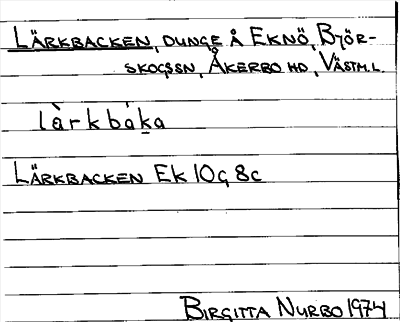 LÄRKBACKEN, DUNGE Å EKNÖ, BJÖR-
SKOGSSN, ÅKERBO HD, VÄSTM.L.
làrkbáka
LÄRKBACKEN EK 10G 8c
BIRGITTA NURBO 1974